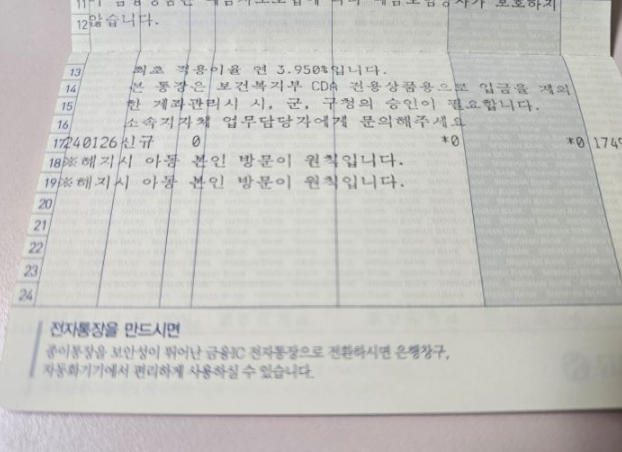 12않습니다.
13 최초 적용이율 연 3.950%입니다.
14 본 통장은 보건복지부 CDA 전용상품용으로 입금을 제외
15 한 계좌관리시 시, 군, 구청의 승인이 필요합니다.
16 소속지자체 업무담당자에게 문의해주세요
17240126신규 0 *0 *0 1749
18※해지시 아동 본인 방문이 원칙입니다.
19※해지시 아동 본인 방문이 원칙입니다.
20
21
22
23
24
전자통장을 만드시면
종이통장을 보안성이 뛰어난 금융IC 전자통장으로 전환하시면 은행창구,
자동화기기에서 편리하게 사용하실 수 있습니다.